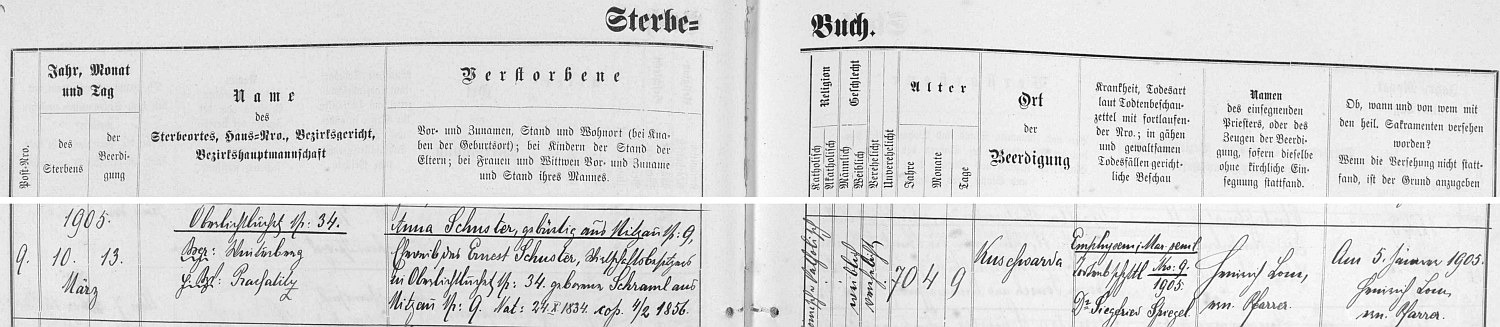 Sterbe=
Buch.
Post-Nro.
Jahr, Monat
und Tag
des
Sterbens
der
Beerdi-
gung
Name
des
Sterbeortes, Haus-Nro., Bezirksgericht,
Bezirkshauptmannschaft
Verstorbene
Vor- und Zunamen, Stand und Wohnort (bei Kna-
ben der Geburtsort); bei Kindern der Stand der
Eltern; bei Frauen und Wittwen Vor- und Zuname
und Stand ihres Mannes.
Religion
Katholisch
Akatholisch
Geschlecht
Männlich
Weiblich
Verehelicht
Unverehelicht
Alter
Jahre
Monate
Tage
Ort
der
Beerdigung
Krankheit, Todesart
laut Todtenbeschau-
zettel mit fortlaufen-
der Nro.; in gähen
und gewaltsamen
Todesfällen gericht-
liche Beschau
Namen
des einsegnenden
Priesters, oder des
Zeugen der Beerdi-
gung, sofern dieselbe
ohne kirchliche Ein-
segnung stattfand.
Ob, wann und von wem mit
den heil. Sakramenten versehen
worden?
Wenn die Versehung nicht statt-
fand, ist der Grund anzugeben
9.
1905.
10. 13.
März
Oberlichtbuchet № 34.
Bzg: Winterberg
Prachatitz
Anna Schuster, gebürtig aus Nitzau № 9,
Eheweib des Ernest Schuster, Wirtschaftsbesitzers
in Oberlichtbuchet № 34. geborene Schraml aus
Nitzau № 9. Nat: 24. X 1834. cop. 4/2 1856.
katholisch
weiblich
verehelicht
70 4 9
Kuschwarda
Emphysem; Mar. senil.
Nro: 9.
1905.
Dr Siegfried Spiegel
Heinrich
Pfarrer.
Am 5. Jänner 1905.
Heinrich
Pfarrer.